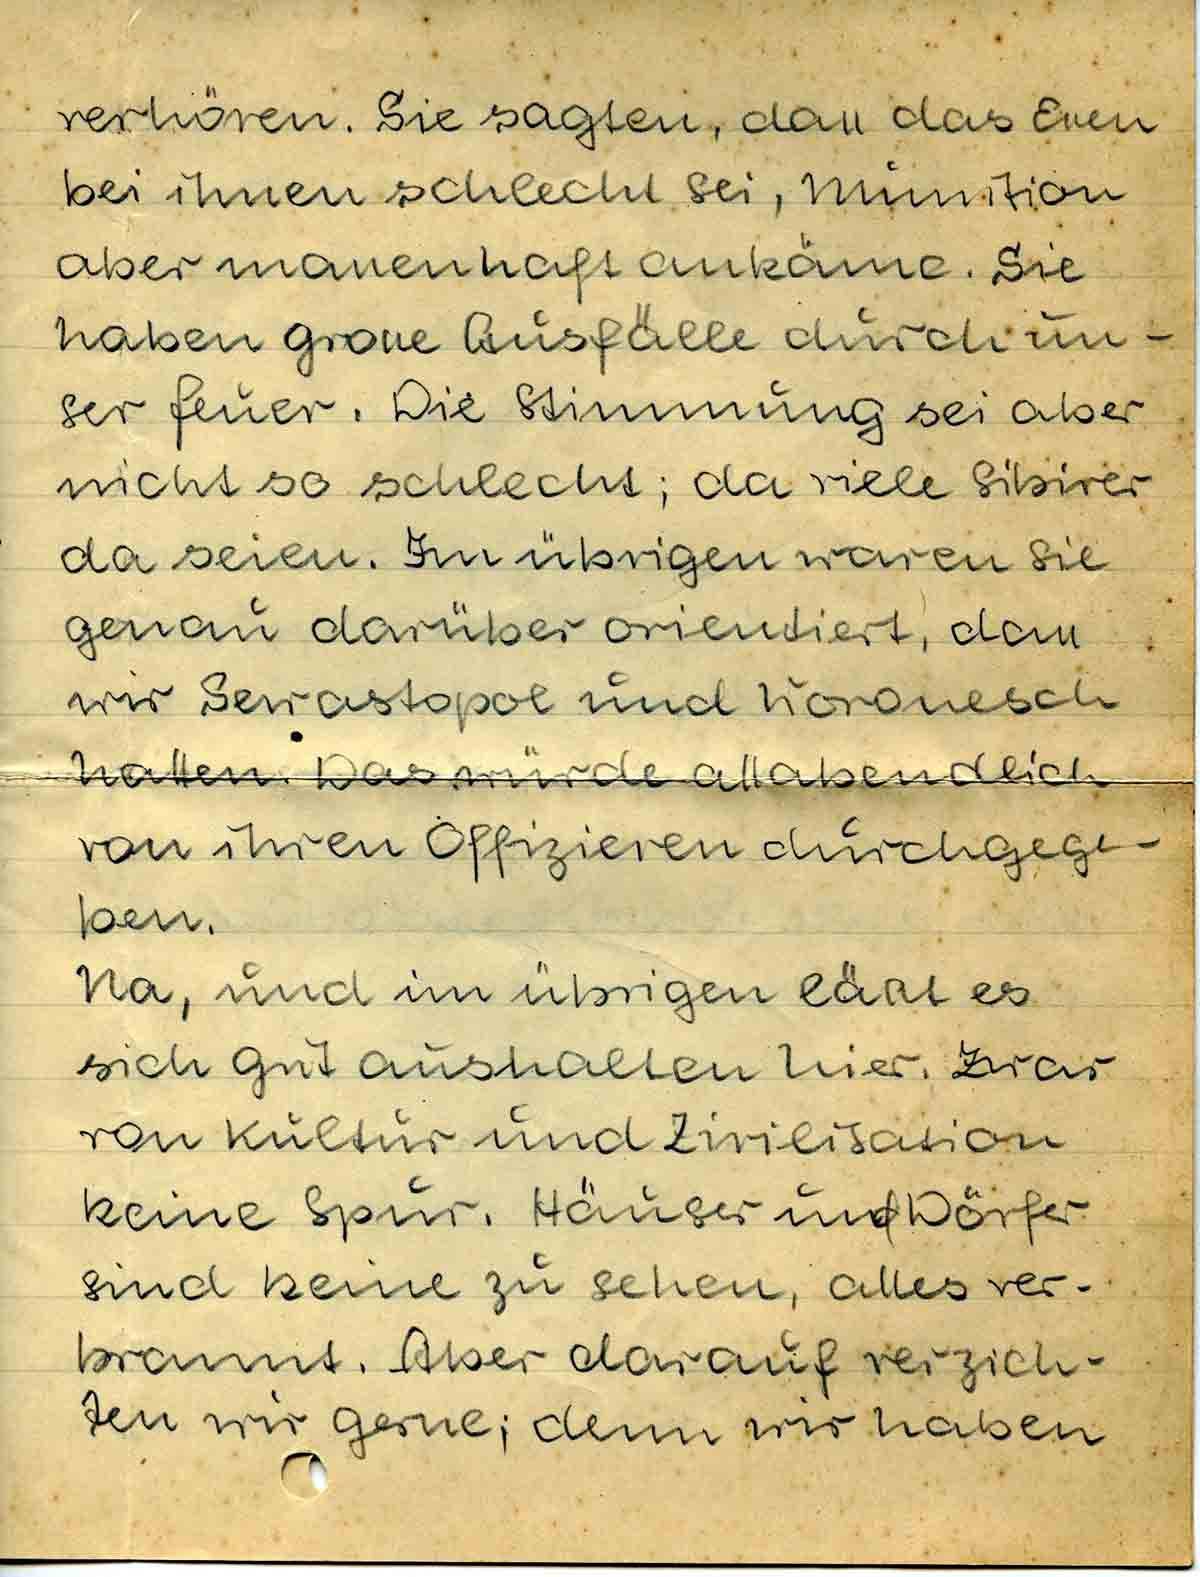 verhören. Sie sagten, dass das Essen
bei ihnen schlecht sei, Munition
aber massenhaft ankäme. Sie
haben grosse Ausfälle durch un-
ser Feuer. Die Stimmung sei aber
nicht so schlecht; da viele Sibirer
da seien. Im übrigen waren sie
genau darüber orientiert, dass
wir Sewastopol und Woronesch
hatten. Das würde allabendlich
von ihren Offizieren durchgege-
ben.
Na, und im übrigen läßt es
sich gut aushalten hier. Zwar
von Kultur und Zivilisation
keine Spur. Häuser und Dörfer
sind keine zu sehen, alles ver-
brannt. Aber darauf verzich-
ten wir gerne; denn wir haben